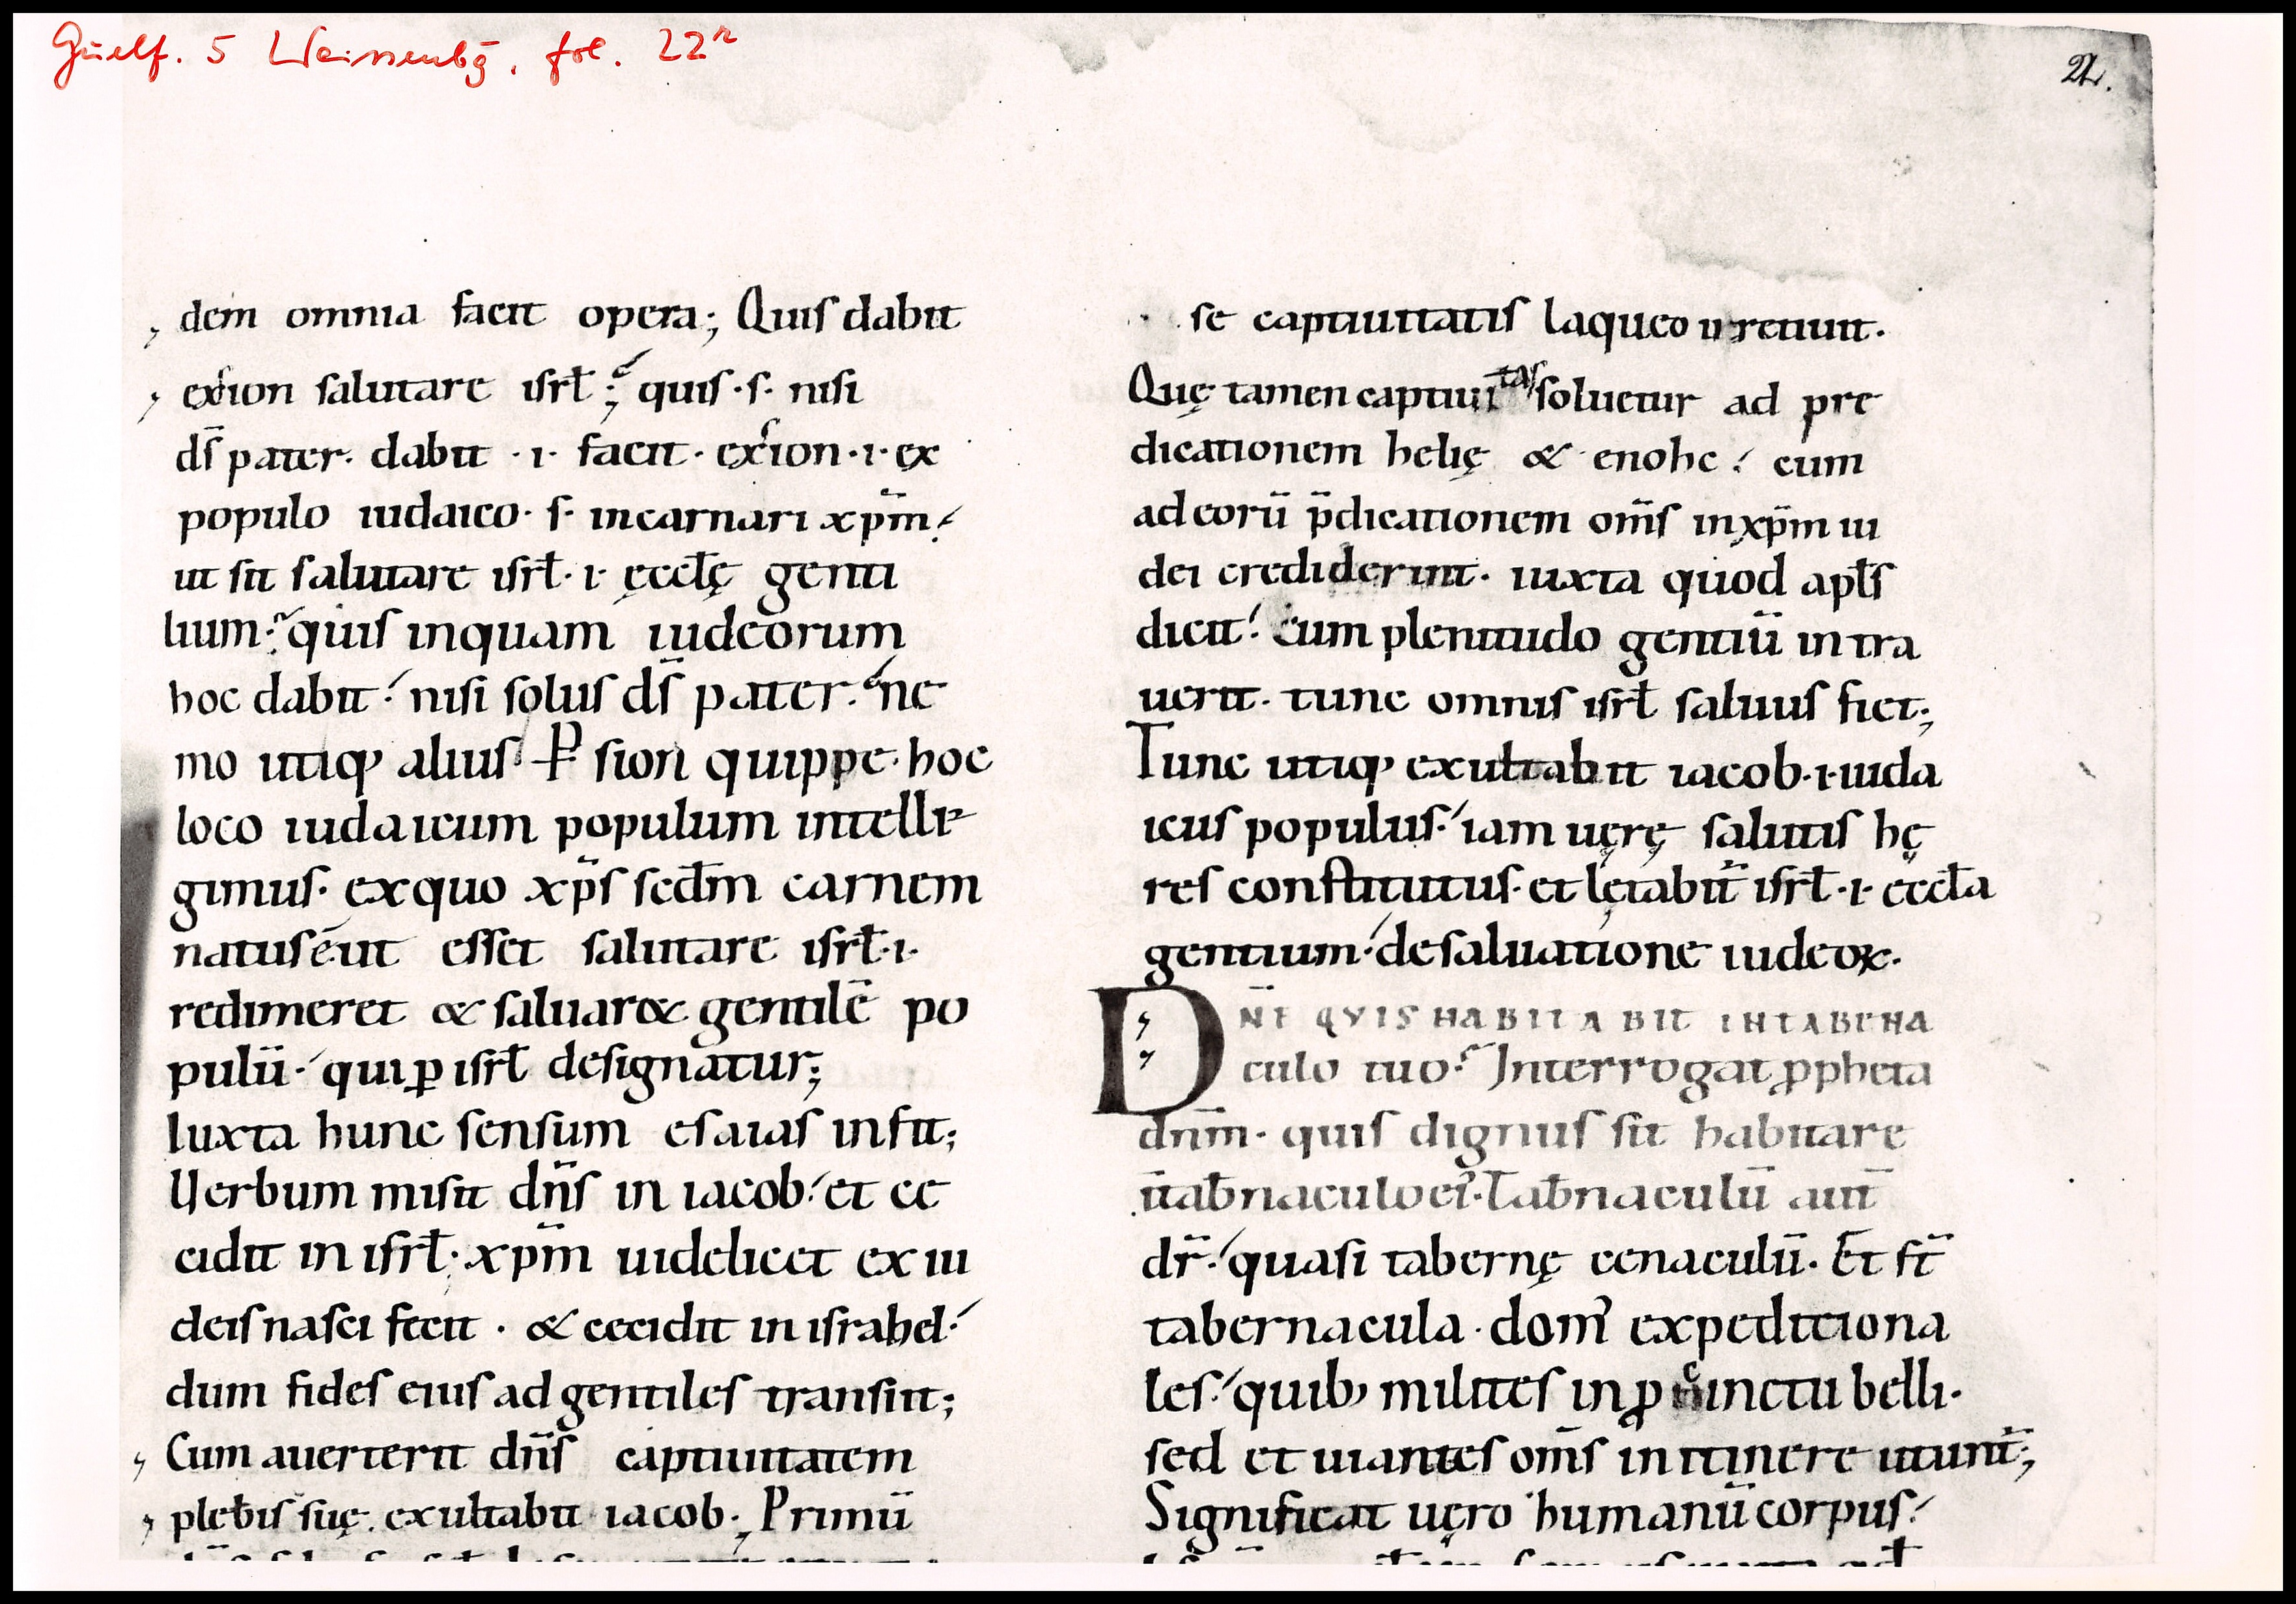 Guelf. 5 Weissenbg. fol. 22r
22.
dem omnia facit opera; Quis dabit
exsion salutare isrł; quis · s · nisi
ds̄ pater · dabit · i · facit · exsion · i · ex
populo iudaico · s · incarnari xp̄m
ut sit salutare isrł · i · ęcclę genti
lium · quis inquam iudeorum
hoc dabit nisi solus ds̄ pater · ne
mo utiq; alius P sion quippe · hoc
loco iudaicum populum intelli
gimus · ex quo xp̄s secdm̄ carnem
natus ē · ut esset salutare isrł · i ·
redimeret & saluar& gentilē po
pulū · qui ꝑ isrł designatur;
Iuxta hunc sensum esaias infit;
Verbum misit dn̄s in iacob · et ce
cidit in isrł · xp̄m uidelicet ex iu
deis nasci fecit · & cecidit in israhel ·
dum fides eius ad gentiles transiit;
Cum auerterit dn̄s captiuitatem
plebis suę exultabit iacob · Primū
se captiuitatis laqueo irretiuit ·
Quę tamen captiuitas soluetur ad pre
dicationem helię & enohc · cum
ad eorū p̄dicationem om̄s in xp̄m iu
dei crediderint · iuxta quod apłs
dicit · Cum plenitudo gentiū intra
uerit · tunc omnis isrł saluus fiet;
Tunc utiq; exultabit iacob · i · iuda
icus populus · iam uęrę salutis hę
res constitutus · et lętabit̄ isrł · i · eccła
gentium · de saluatione iudeoꝝ ·
DN̄E QVIS HABITABIT IN TABERNA
culo tuo · Interrogat ꝓpheta
dnm̄ · quis dignus sit habitare
ī tab̄naculo ei᾽ · Tab̄naculū aut̄
dr̄ · quasi tabernę cenaculū · Et st̄
tabernacula · dom᾽ expeditiona
les · quib; milites in ꝓcinctu belli ·
sed et uiantes om̄s in itinere utunt̄;
Significat uęro humanū corpus ·